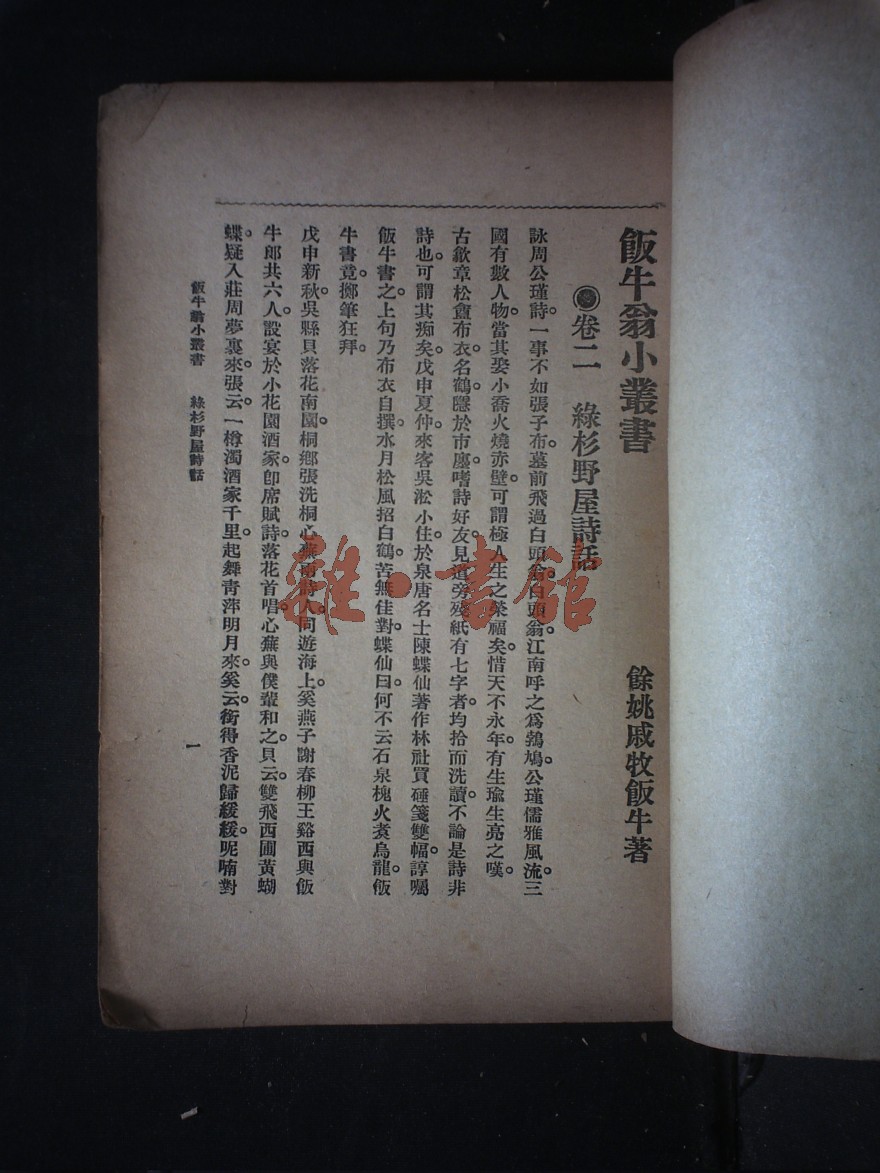 飯牛翁小叢書
卷二　綠杉野屋詩話
餘姚戚牧飯牛著
詠周公瑾詩。一事不如張子布。墓前飛過白頭翁。白頭翁。江南呼之爲鵓鳩。公瑾儒雅風流。三
國有數人物。當其娶小喬火燒赤壁。可謂極人生之榮福矣。惜天不永年。有生瑜生亮之嘆。
古歙章松盦布衣。名鶴。隱於市廛。嗜詩好友。見道旁殘紙有七字者。均拾而洗讀。不論是詩非
詩也。可謂其痴矣。戊申夏仲。來客吳淞。小住於泉唐名士陳蝶仙著作林社。買硾箋雙幅。諄囑
飯牛書之。上句乃布衣自撰。水月松風招白鶴。苦無佳對。蝶仙曰。何不云石泉槐火煑烏龍。飯
牛書竟。擲筆狂拜。
戊申新秋。吳縣貝落花南園。桐鄉張洗桐心蕪南詩人。同遊海上。奚燕子謝春柳王谿西與飯
牛郎共六人。設宴於小花園酒家。卽席賦詩。落花首唱。心蕪與僕輩和之。貝云。雙飛西圃黃蝴
蝶。疑入莊周夢裏來。張云。一樽濁酒家千里。起舞靑萍明月來。奚云。銜得香泥歸緩緩。呢喃對
飯牛翁小叢書　綠杉野屋詩話
一
雜·書館